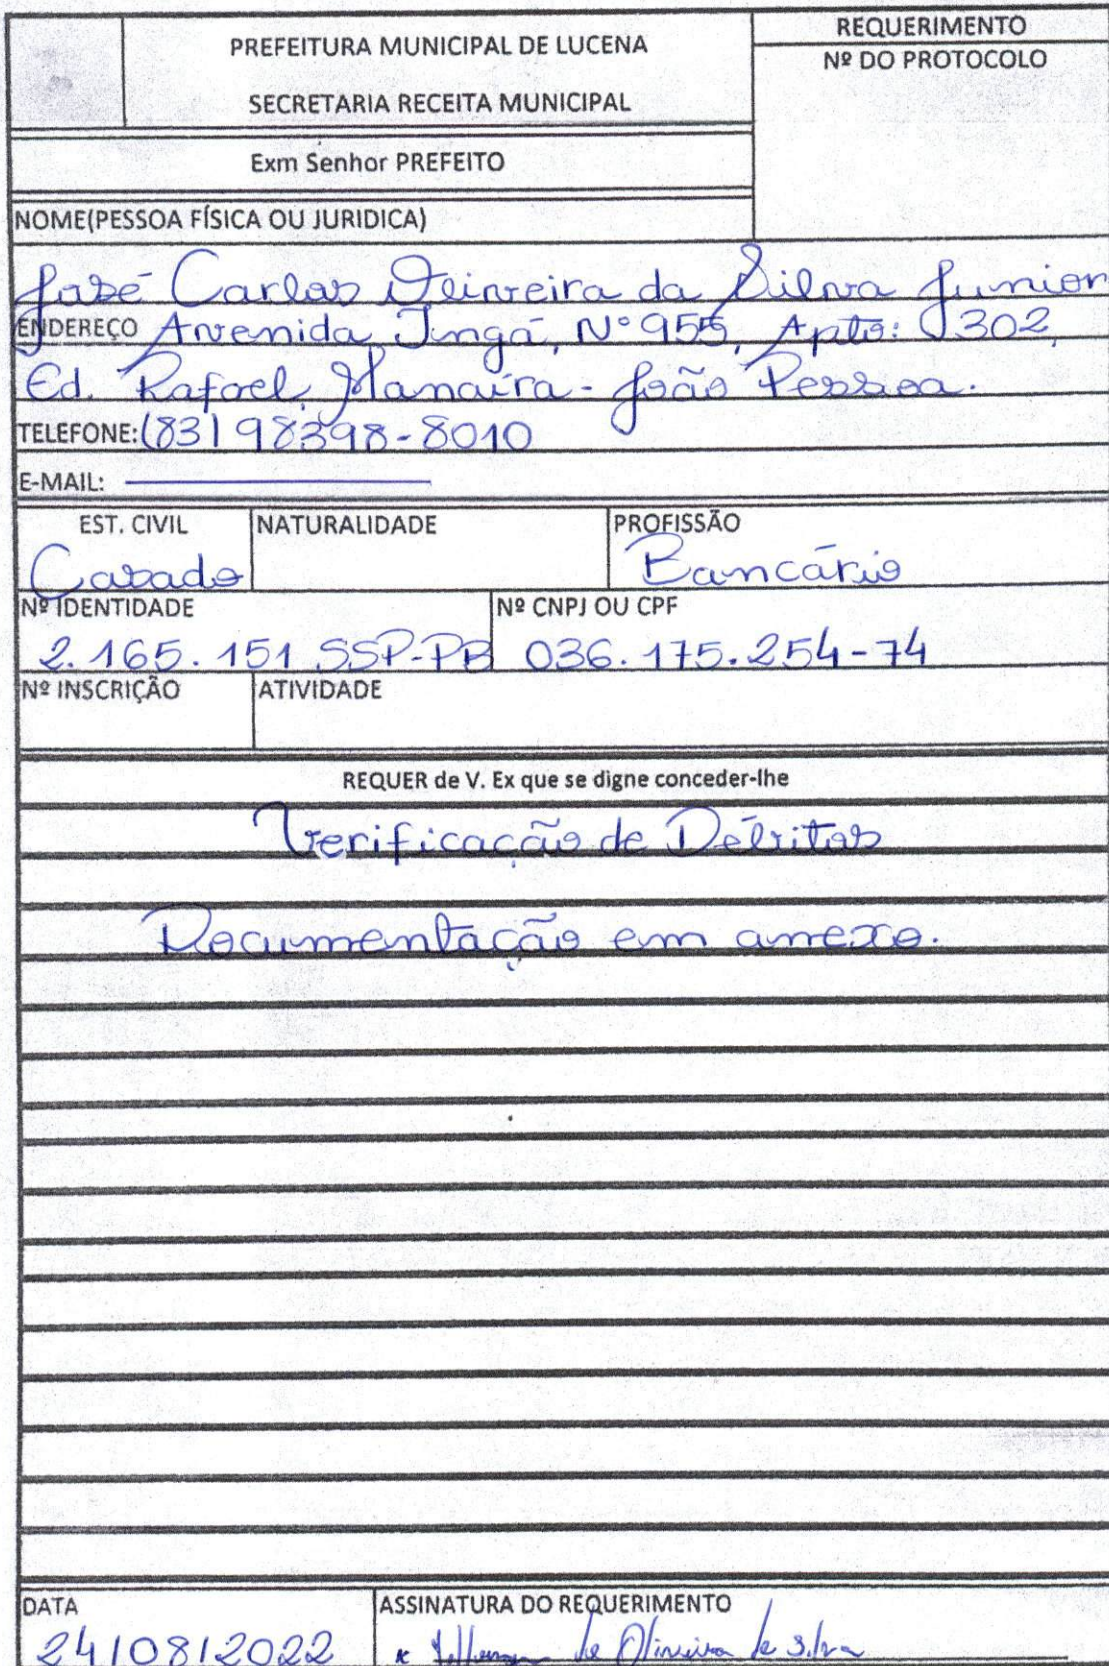 PREFEITURA MUNICIPAL DE LUCENA
SECRETARIA RECEITA MUNICIPAL
REQUERIMENTO
Nº DO PROTOCOLO
Exm Senhor PREFEITO
NOME(PESSOA FÍSICA OU JURIDICA)
José Carlos Oliveira da Silva Junior
ENDEREÇO Avenida Ingá, Nº 955, Apto: 302,
Ed. Rafael, Manaíra - João Pessoa.
TELEFONE: (83) 98398-8010
E-MAIL:
EST. CIVIL NATURALIDADE PROFISSÃO
Casado Bancário
Nº IDENTIDADE Nº CNPJ OU CPF
2.165.151 SSP-PB 036.175.254-74
Nº INSCRIÇÃO ATIVIDADE
REQUER de V. Ex que se digne conceder-lhe
Verificação de Débitos
Documentação em anexo.
DATA ASSINATURA DO REQUERIMENTO
24/08/2022 x de Oliveira de Silva